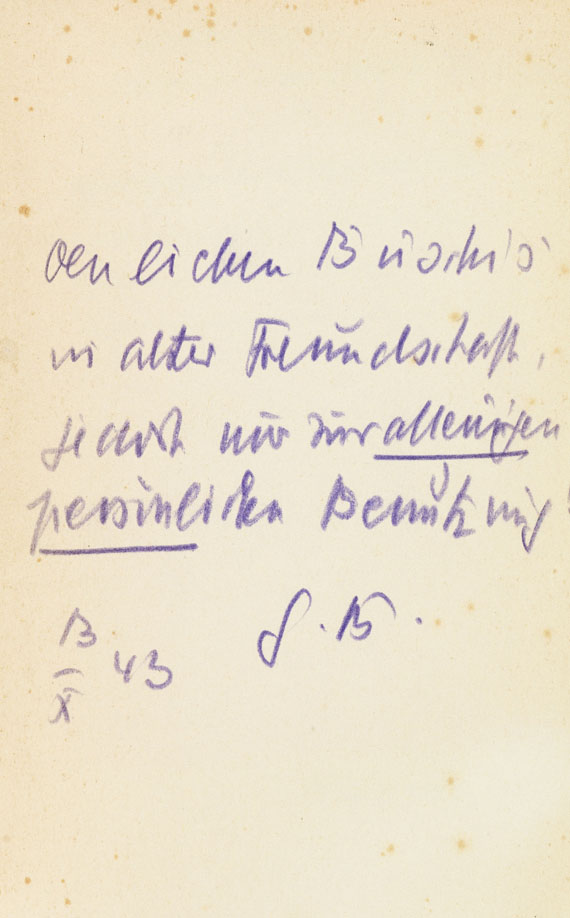 den lieben Buschi's
in alter Freundschaft,
jedoch nur zur alleinigen
persönlichen Benutzung!
G. B.
13/X 43